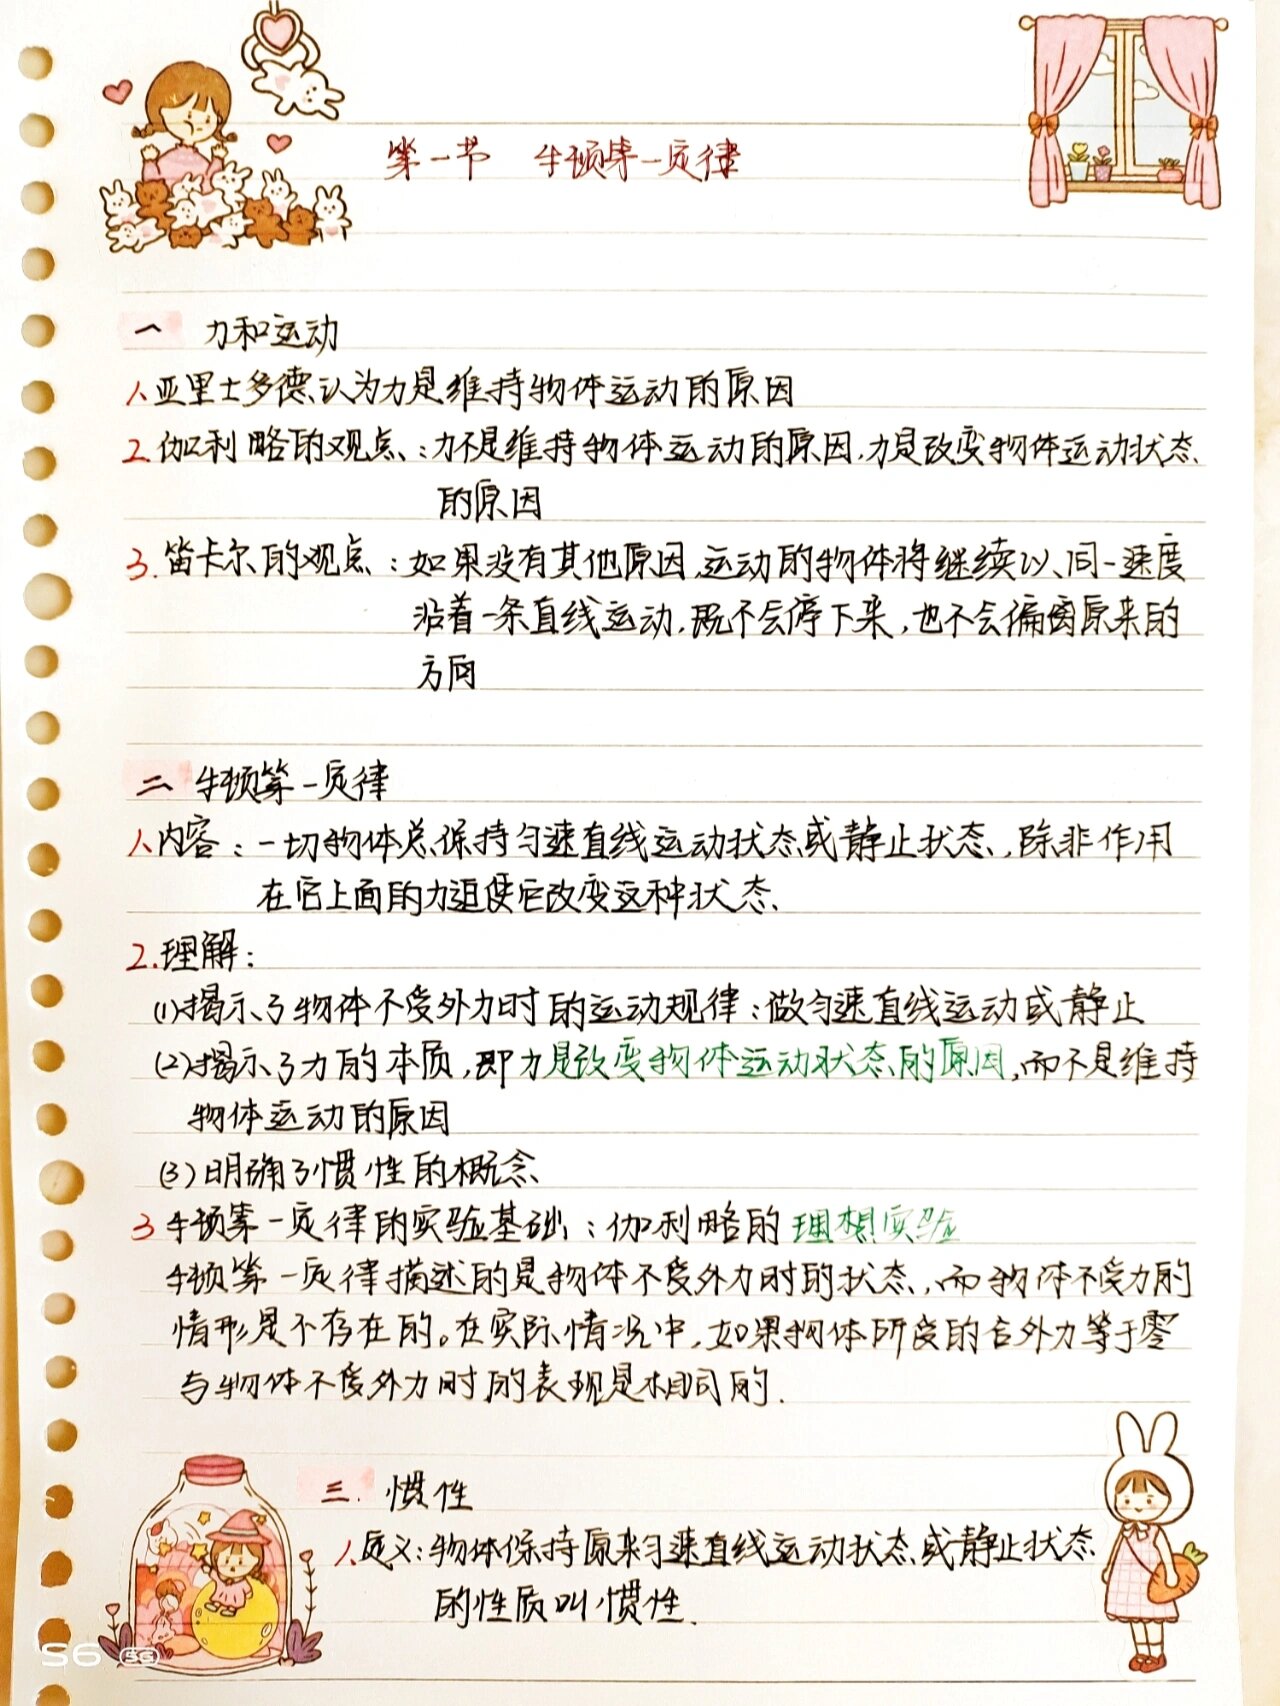 第一节 牛顿第一定律
一 力和运动
1.亚里士多德认为力是维持物体运动的原因
2.伽利略的观点:力不是维持物体运动的原因,力是改变物体运动状态
的原因
3.笛卡尔的观点:如果没有其他原因,运动的物体将继续以同一速度
沿着一条直线运动,既不会停下来,也不会偏离原来的
方向
二 牛顿第一定律
1.内容:一切物体总保持匀速直线运动状态或静止状态,除非作用
在它上面的力迫使它改变这种状态.
2.理解:
(1)揭示了物体不受外力时的运动规律:做匀速直线运动或静止
(2)揭示了力的本质,即力是改变物体运动状态的原因,而不是维持
物体运动的原因
(3)明确了惯性的概念
3 牛顿第一定律的实验基础:伽利略的理想实验
牛顿第一定律描述的是物体不受外力时的状态,而物体不受力的
情形是不存在的。在实际情况中,如果物体所受的合外力等于零
与物体不受外力时的表现是相同的.
三. 惯性
1.定义:物体保持原来匀速直线运动状态或静止状态
的性质叫惯性.
S6 5G